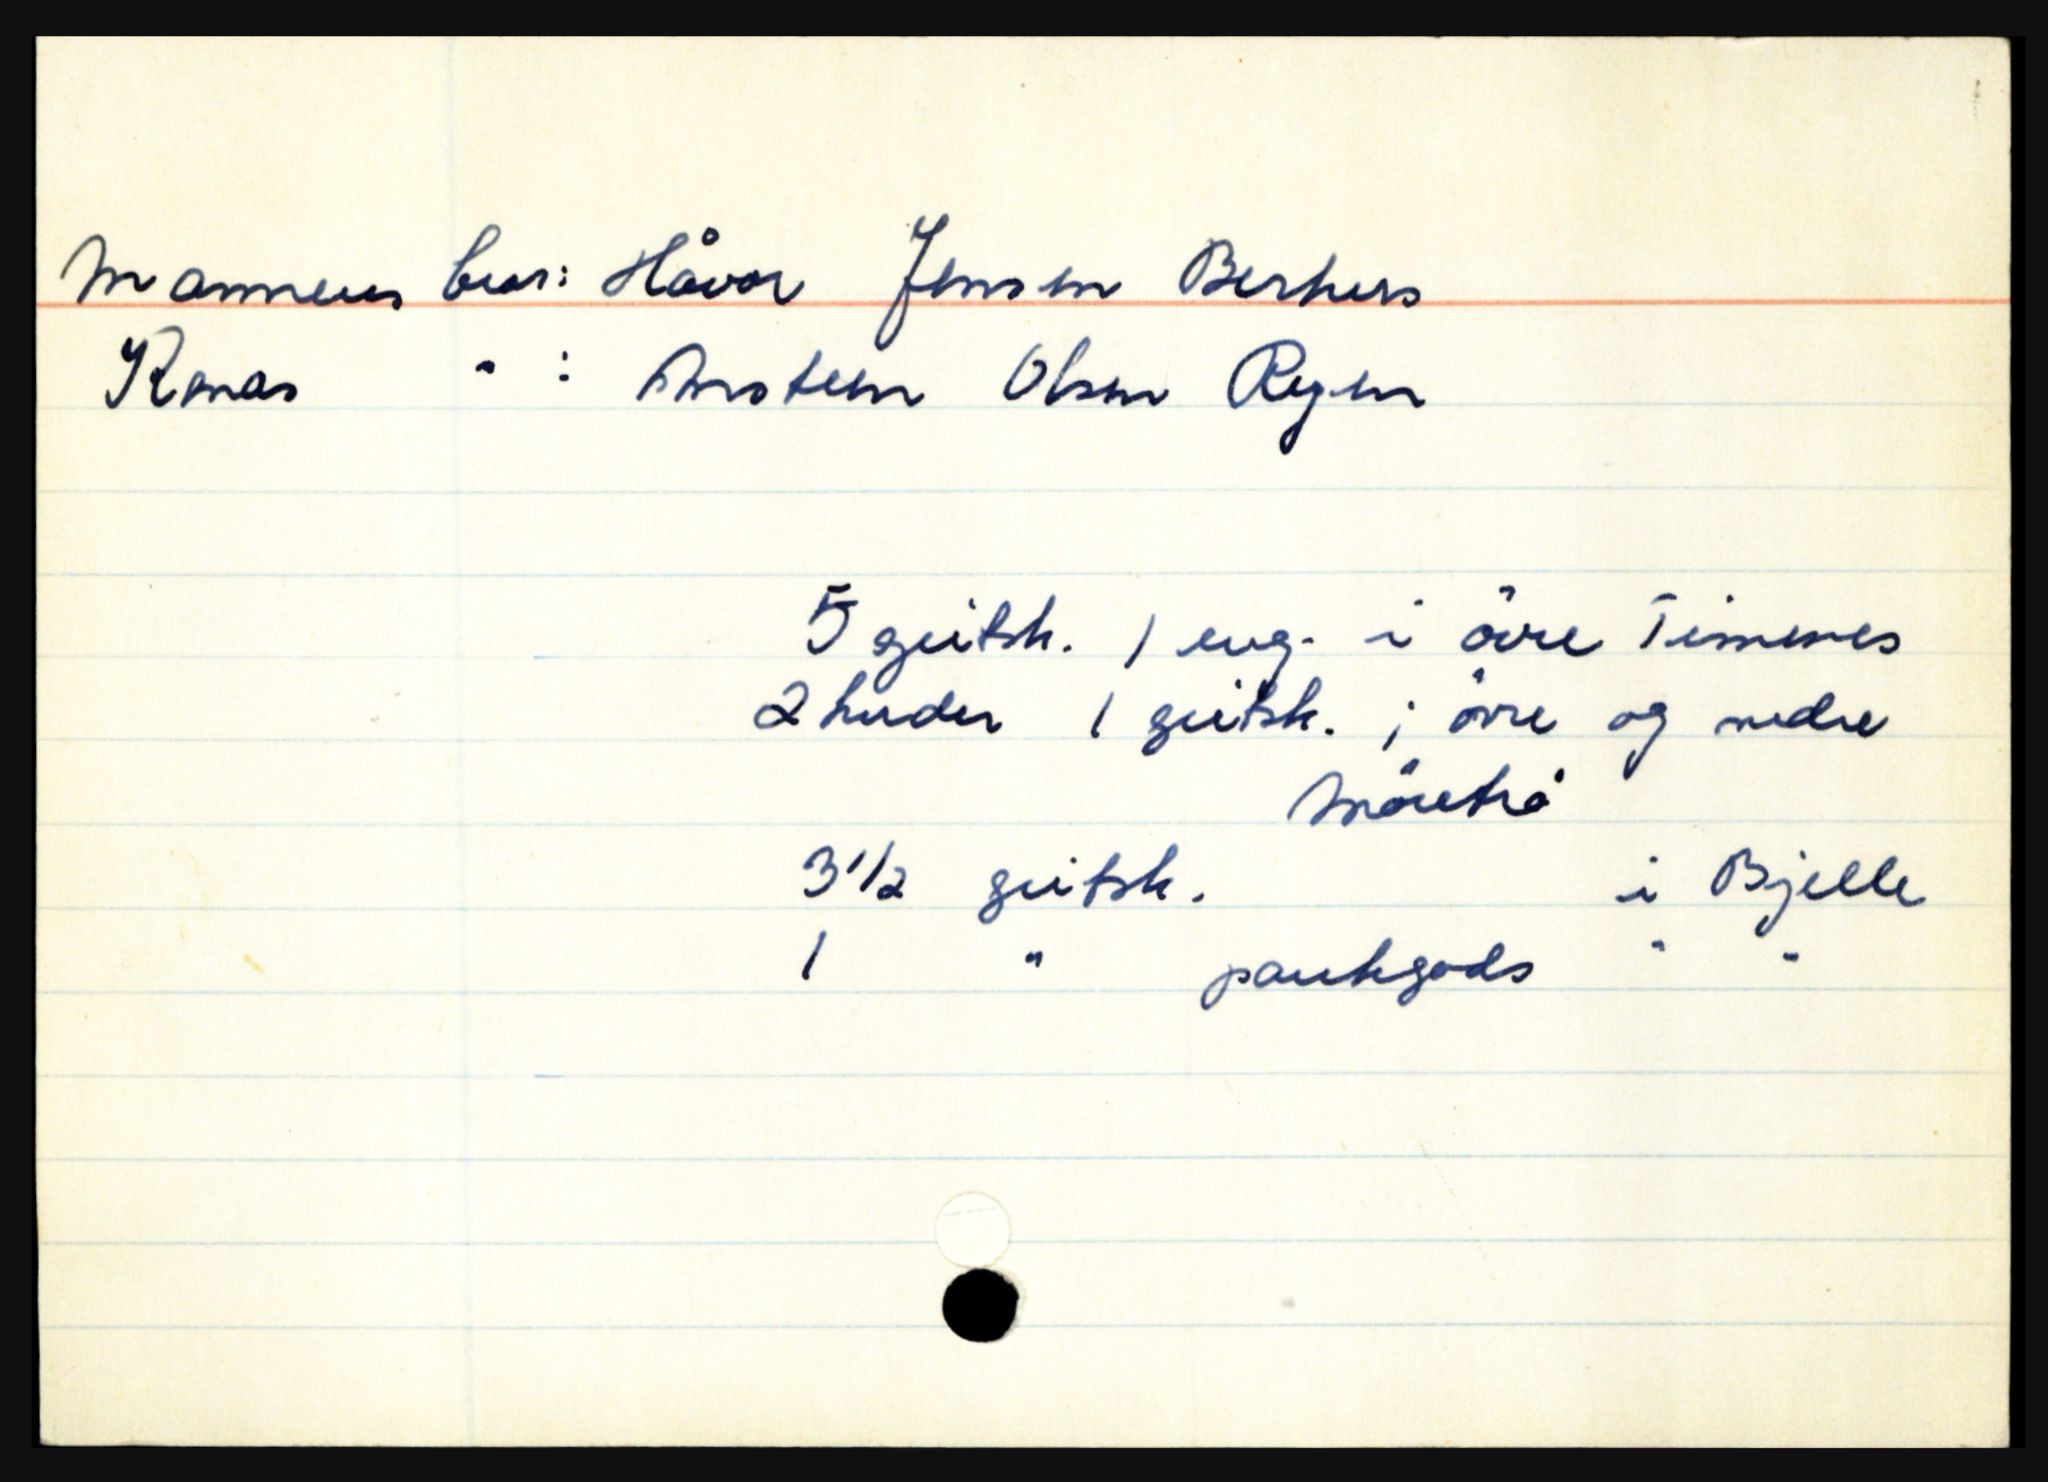 Mannens bror: Håvor Jensen Berhus
Konas " : Anstein Olsen Regen
5 geitsk. 1 eng. i övre Timenes
2 huder 1 geitsk. i övre og nedre
Möretrå
3 1/2 geitsk. i Bjelle
1 " pantegods " "